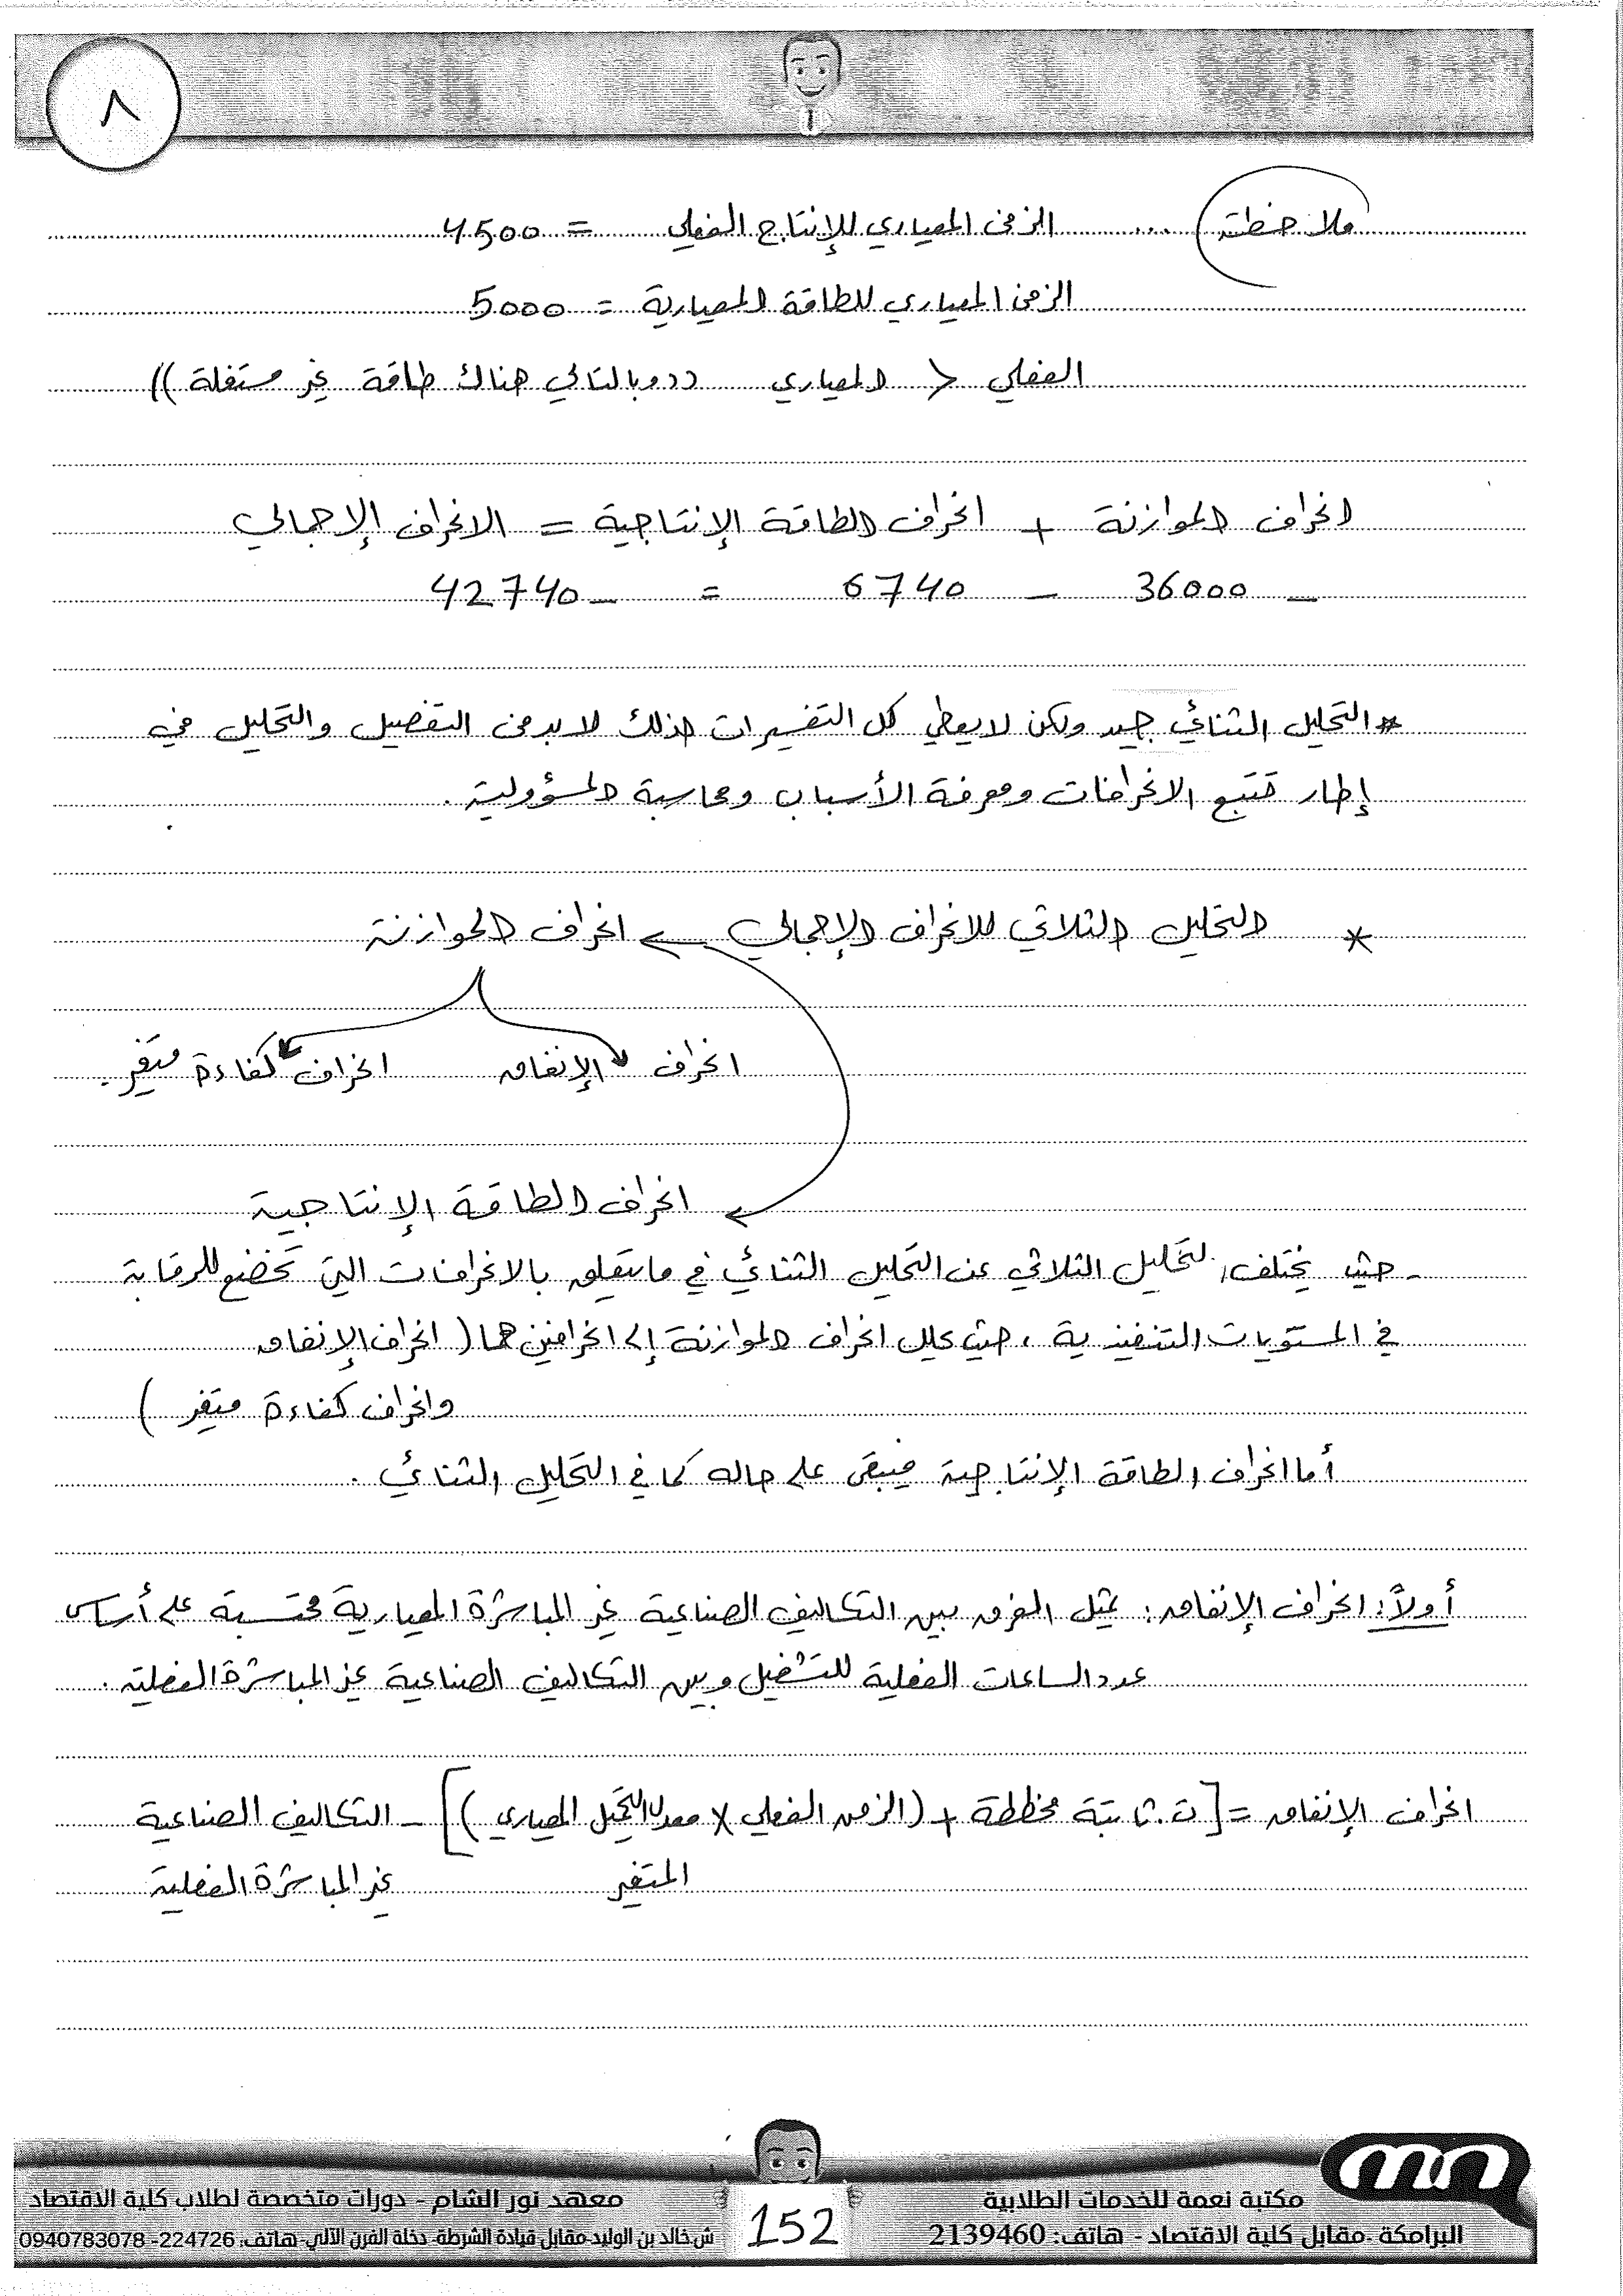 ٨
ملاحظة ... الزمن المعياري للإنتاج الفعلي = 4500
الزمن المعياري للطاقة المعيارية = 5000
الفعلي < المعياري ((وبالتالي هناك طاقة غير مستغلة))
انحراف الموازنة + انحراف الطاقة الإنتاجية = الانحراف الإجمالي
- 36000 - 6740 = - 42740
* التحليل الثنائي جيد ولكن لا يعطي كل التفسيرات لذلك لابد من التفصيل والتحليل في
إطار تتبع الانحرافات ومعرفة الأسباب ومحاسبة المسؤولية .
* التحليل الثلاثي للانحراف الإجمالي ← انحراف الموازنة
انحراف الإنفاق انحراف كفاءة متغير .
انحراف الطاقة الإنتاجية
- حيث يختلف التحليل الثلاثي عن التحليل الثنائي في ما يتعلق بالانحرافات التي تخضع للرقابة
في المستويات التنفيذية ، حيث يحلل انحراف الموازنة إلى انحرافين هما ( انحراف الإنفاق
وانحراف كفاءة متغير )
أما انحراف الطاقة الإنتاجية فيبقى على حاله كما في التحليل الثنائي .
أولاً: انحراف الإنفاق : يمثل الفرق بين التكاليف الصناعية غير المباشرة المعيارية محتسبة على أساس
عدد الساعات الفعلية للتشغيل وبين التكاليف الصناعية غير المباشرة الفعلية .
انحراف الإنفاق = [ ت . ثابتة مخططة + (الزمن الفعلي × معدل التحميل المعياري ) ] - التكاليف الصناعية
المتغير غير المباشرة الفعلية
مكتبة نعمة للخدمات الطلابية
البرامكة -مقابل كلية الاقتصاد - هاتف: 2139460
152
معهد نور الشام - دورات متخصصة لطلاب كلية الاقتصاد
ش خالد بن الوليد-مقابل قيادة الشرطة- دخلة الفرن الآلي-هاتف: 224726- 0940783078